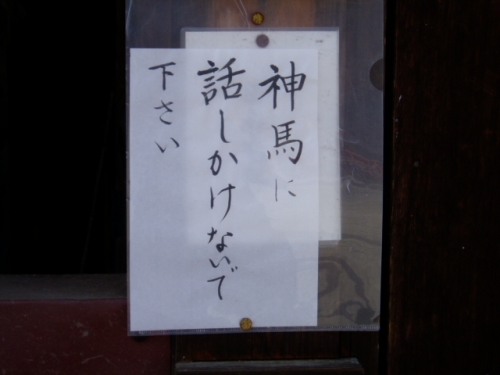 神馬に
話しかけないで
下さい